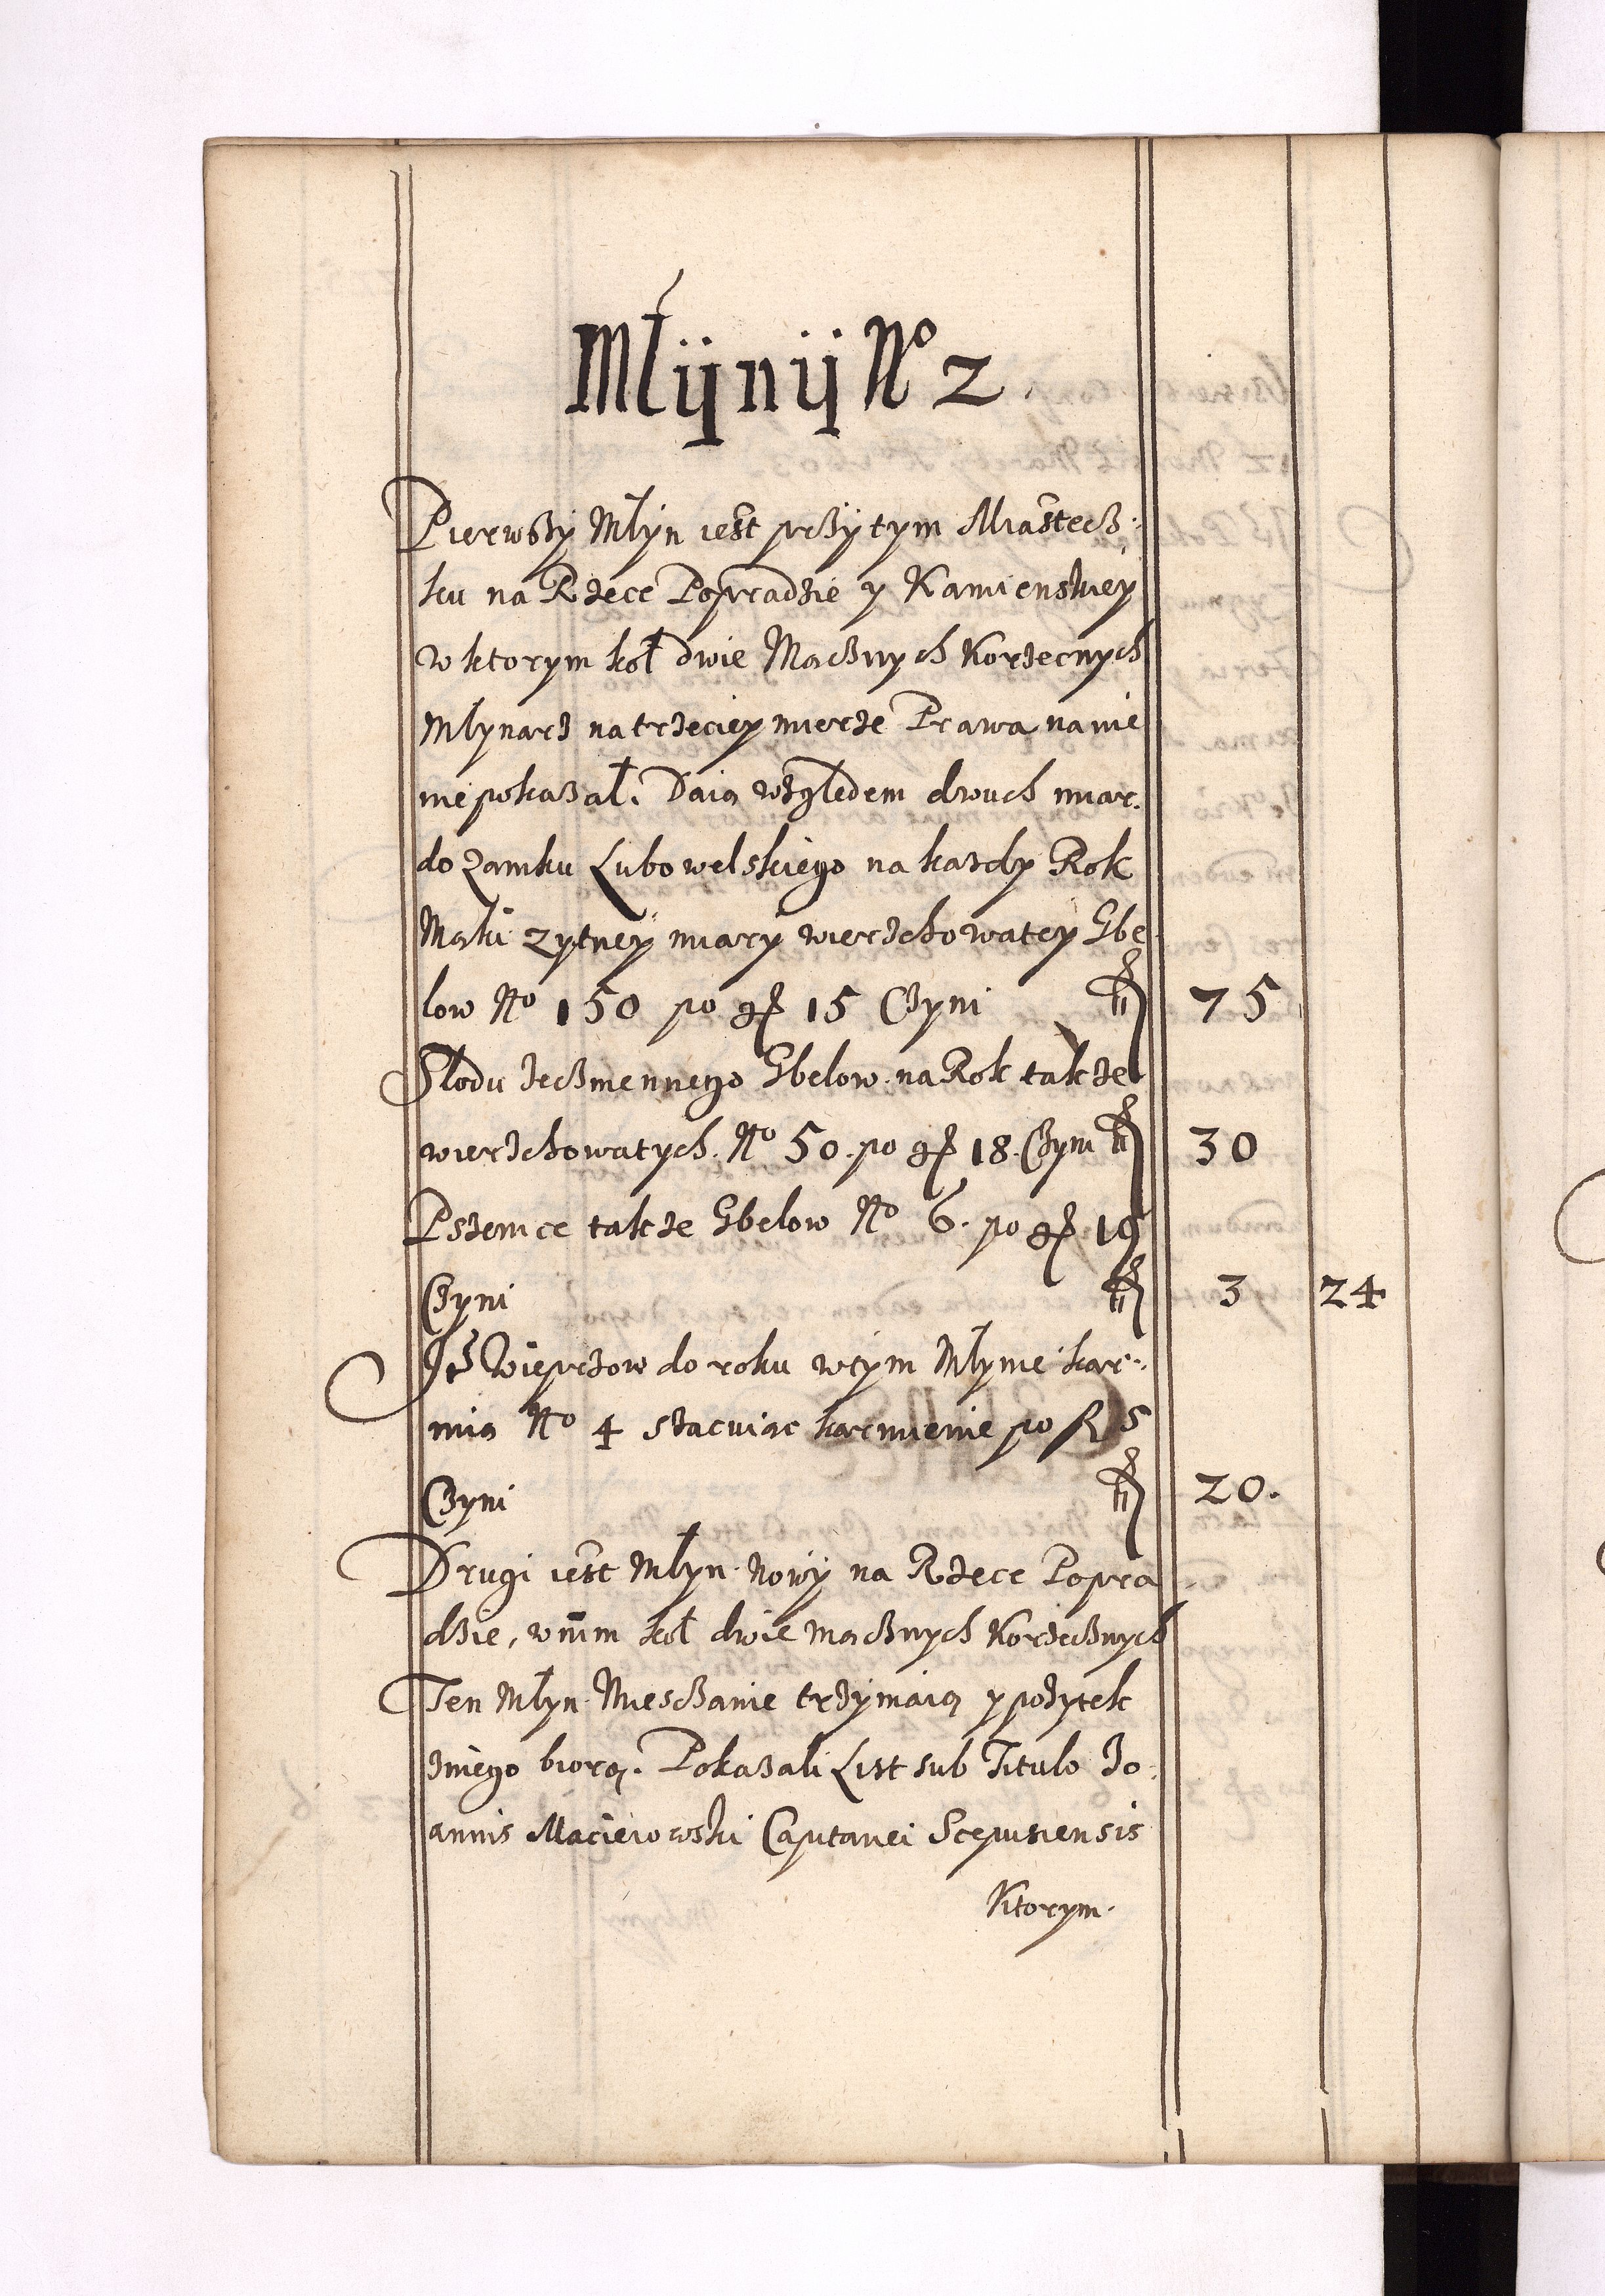 Młÿnÿ No 2
Pierwszÿ Młyn iest przÿ tym Miastecz:
ku na Rzece Popradzie y Kamienskiey
w ktorym koł dwie Mącznych Korzecnych
Młynarz na trzeciey mierze Prawa na nie
nie pokazał. Daią względem dwuch miar.
do Zamku Lubowelskiego na kazdy Rok
Mąki Zytney miary wierzchowatey Gbe
low No 150 po gr 15 Czyni fl 75
Słodu Jeczmennego Gbelow na Rok takze
wierzchowatych. No 50. po gr 18. Czyni fl 30
Pszenice takze Gbelow No 6. po gr 19
Czyni fl 3 24
Jt Wieprzow do roku w tym Młynie kar:
mią No 4 szacuiąc karmienie po fl 5
Czyni fl 20.
Drugi iest Młyn Nowÿ na Rzece Popra
dzie, w nim koł dwie mącznych Korzecznych
Ten Młyn Miesczanie trzÿmaią y pożytek
z niego biorą. Pokazali List sub Titulo Jo
annis Macieiowski Capitanei Scepusiensis
Ktorym.